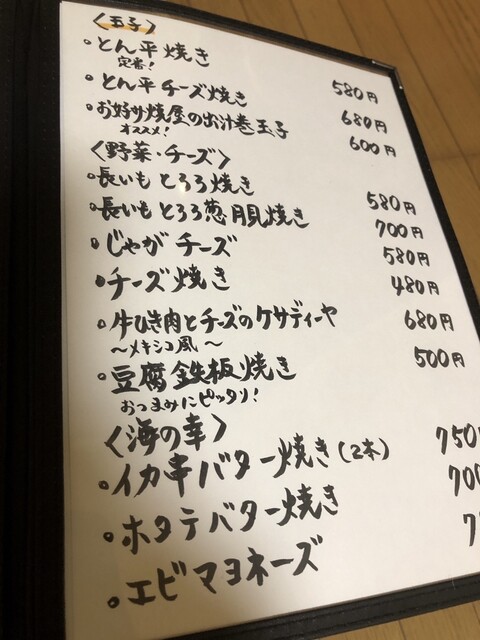 〈玉子〉
・とん平焼き 580円
定番!
・とん平チーズ焼き 680円
・お好み焼屋の出汁巻玉子 600円
オススメ!
〈野菜・チーズ〉
・長いもとろろ焼き 580円
・長いもとろろ葱 焼き 700円
・じゃがチーズ 580円
・チーズ焼き 480円
・牛ひき肉とチーズのケサディーヤ 680円
〜メキシコ風〜
・豆腐鉄板焼き 500円
おつまみにピッタリ!
〈海の幸〉
・イカ串バター焼き(2本) 750
・ホタテバター焼き 700
・エビマヨネーズ 7